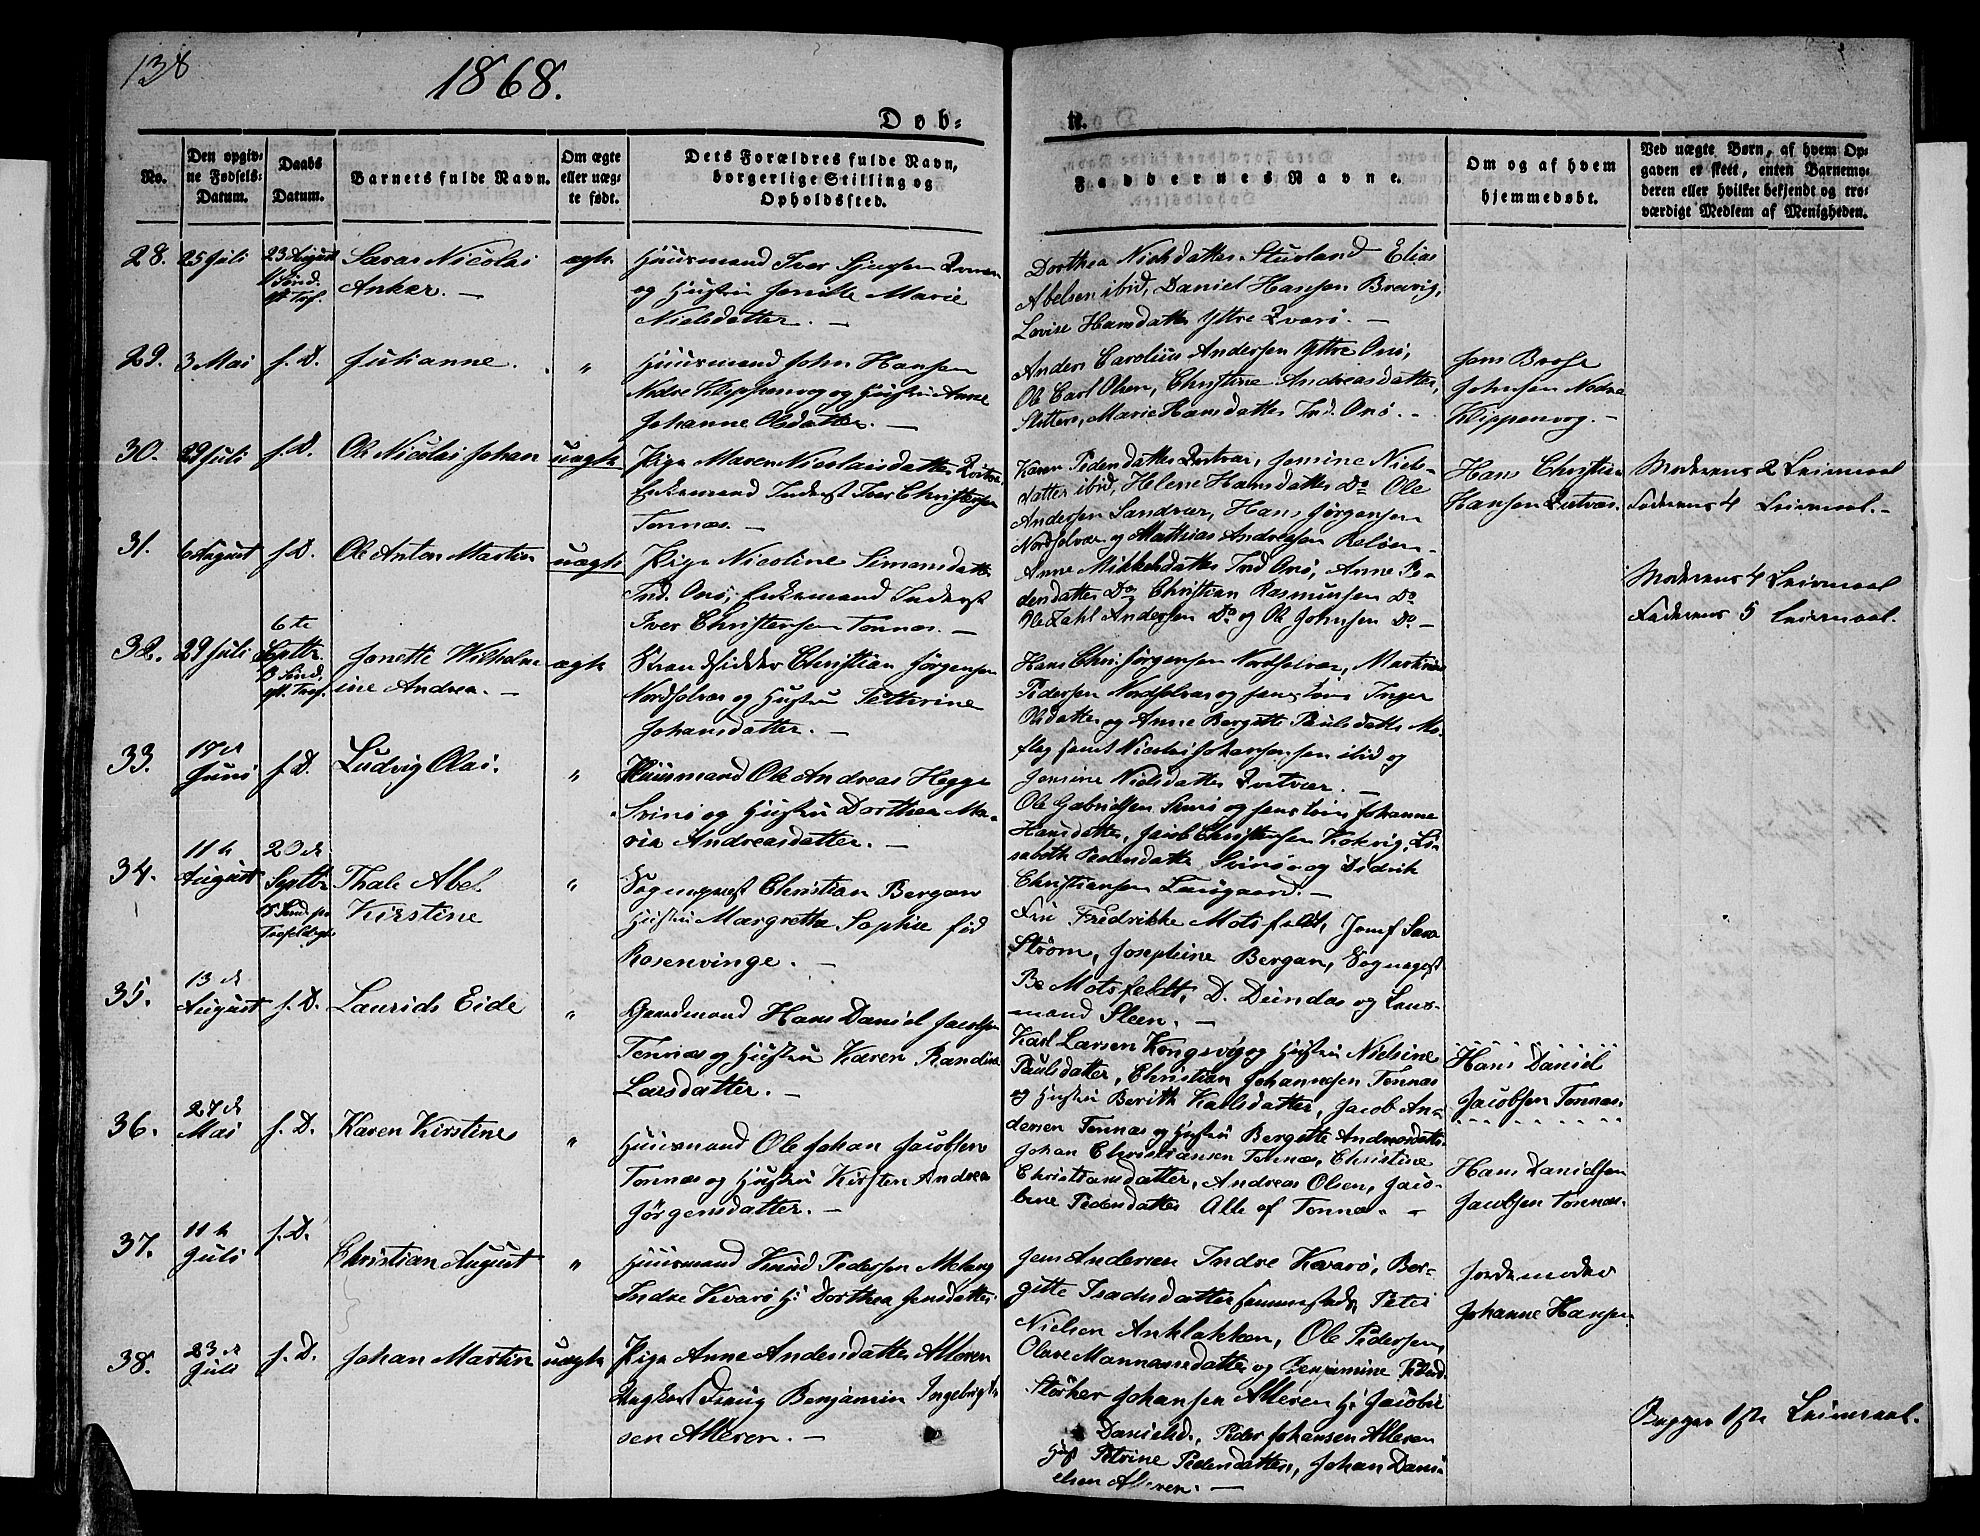 138
1868.
Døb-
n.
No.
Den opgiv-
ne Fødsels-
Datum.
Daabs
Datum.
Barnets fulde Navn.
Om ægte
eller uæg-
te født.
Dets Forældres fulde Navn,
borgerlige Stilling og
Opholdssted.
Faddernes Navne.
Om og af hvem
hjemmedøbt.
Ved uægte Børn, af hvem Op-
gaven er skeet, enten Barnemo-
deren eller hvilket bekjendt og tro-
værdigt Medlem af Menigheden.
28.
25 Juli
23 August
Nicolai
Anker. —
ægte
Huusmand Iver
og Hustru Marie
Nielsdatter. —
Dorthea Nielsdatter Stuvland Elias
Abelsen ibid, Daniel Hansen Brevig,
Lovise Hansdatter Yttre Qvarø. —
29.
3 Mai
s. D.
Julianne.
"
Huusmand John Hansen
Nedre Klippenvog og Hustru Anne
Johanne Olsdatter. —
Anders Carolius Andersen Yttre Onø,
Ole Carl Olsen, Christine Andreasdatter,
Marie Hansdatter Ind. Onø. —
Jens
Johnsen Nedre
Klippenvog. —
30.
29 Juli
s. D.
Ole Nicolai Johan
uægte
Pige Maren Nicolaisdatter
Enkemand Inderst Iver Christensen
Tonnæs. —
Karen Pedersdatter Jensine Niels-
datter ibid, Helene Hansdatter Do Ole
Andersen Sandvær, Hans Jørgensen
Nordsolvær og Mathias Andreasen
Hans Christian
Hansen
Moderens 2 Leiermaal
Faderens 4 Leiermaal. —
31.
6 August
s. D.
Ole Anton Martin
uægte
Pige Nicoline Simonsdatter
Ind. Onø, Enkemand Inderst
Iver Christensen Tonnæs. —
Anne Mikkelsdatter Ind Onø, Anne Pe-
dersdatter Do Christian Rasmussen Do
Ole Zahl Andersen Do og Ole Johnsen Do —
Moderens 4 Leiermaal
Faderens 5 Leiermaal.
32.
29 Juli
6te
Septbr
Jonette Wilhelm-
ine Andrea. —
ægte
Strandsidder Christian Jørgensen
Nordsolvær og Hustru Petterine
Johansdatter. —
Hans Chr. Jørgensen Nordsolvær, Martinus
Pedersen Nordsolvær og Inger
Olsdatter og Anne Bergitte Paulsdatter Mo-
flag samt Nicolai Johannesen ibid og
Jensine Nielsdatter —
33.
19de
Juni
s. D.
Ludvig Olai.
"
Huusmand Ole Andreas Hegge
Svinø og Hustru Dorthea Ma-
ria Andreasdatter. —
Ole Gabrielsen Svinø og Johanne
Hansdatter, Jacob Christensen Kokvig, Li-
sabeth Pedersdatter Svinø og Didrik
Christiansen —
34.
11te
August
20de
Septbr
Thale Abel
Kirstine
"
Sognepræst Christian Bergan
Hustru Margrethe Sophie fød
Rosenvinge. —
Fru Fredrikke Motzfeldt, Jomf Sara
Strøm, Josephine Bergan, Sognepræst
Motzfeldt, D. Dundas og Lens-
mand Steen. —
35.
13de
August
s. D.
Laurids Eide
"
Gaardmand Hans Daniel Jacobsen
Tonnæs og Hustru Karen Randine
Larsdatter. —
Karl Larsen Kongsvig og Hustru Nielsine
Paulsdatter, Christian Johannesen Tonnæs
og Hustru Berith Karlsdatter, Jacob An-
dersen Tonnæs og Hustru Bergitte Andreasdatter.
Hans Daniel
Jacobsen Tonnæs.
36.
27de
Mai
s. D.
Karen Kirstine
"
Huusmand Ole Johan Jacobsen
Tonnæs og Hustru Kirsten Andrea
Jørgensdatter. —
Johan Christiansen Tonnæs, Christine
Christiansdatter, Andreas Olsen, Jaco-
bine Pedersdatter Alle af Tonnæs —
Hans Danielsen
Jacobsen Tonnæs.
37.
11te
Juli
s. D.
Christian August
"
Huusmand Knud Pedersen Melang
Indre Kvarø H: Dorthea Jensdatter
Jens Andersen Indre Kvarø, Ber-
gitte Isaksdatter sammesteds, Peter
Nielsen Anklakken, Ole Pedersen,
Jordemoder
Johanne Hansen
38.
23de
Juli
s. D.
Johan Martin
uægte
Pige Anne Andersdatter Alderen
Ungkarl Benjamin Ingebrigt-
sen Alderen. —
Olave Mannasedatter og Benjamine
Størker Johansen Alderen H: Jacobie
Danielsd., Peder Johansen Alderen
Hust Petrine Pedersdatter, Johan Dani-
elsen Alderen. —
Begges 1ste Leiermaal.